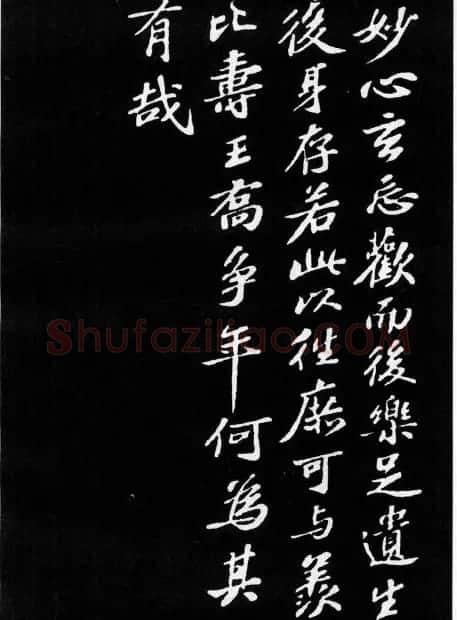 妙心玄忘歡而後樂足遺生
後身存若此以往庶可与羨
比壽王喬争年何為其
有哉
Shufaziliao.COM